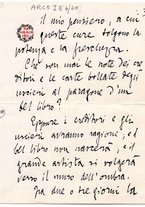 ARCS I E 6/20
il mio pensiero, a cui
queste cure tolgono la
potenza e la freschezza.
Che non mai le note dei cre-
ditori e le carte bollate degli
uscieri al paragone d'un
bel libro?
Eppure i creditori e gli
uscieri avranno ragione, ed
bel libro non nascerà, e il
grande artista si volgerà
verso il muro dell'ombra.
Fra due o tre giorni la